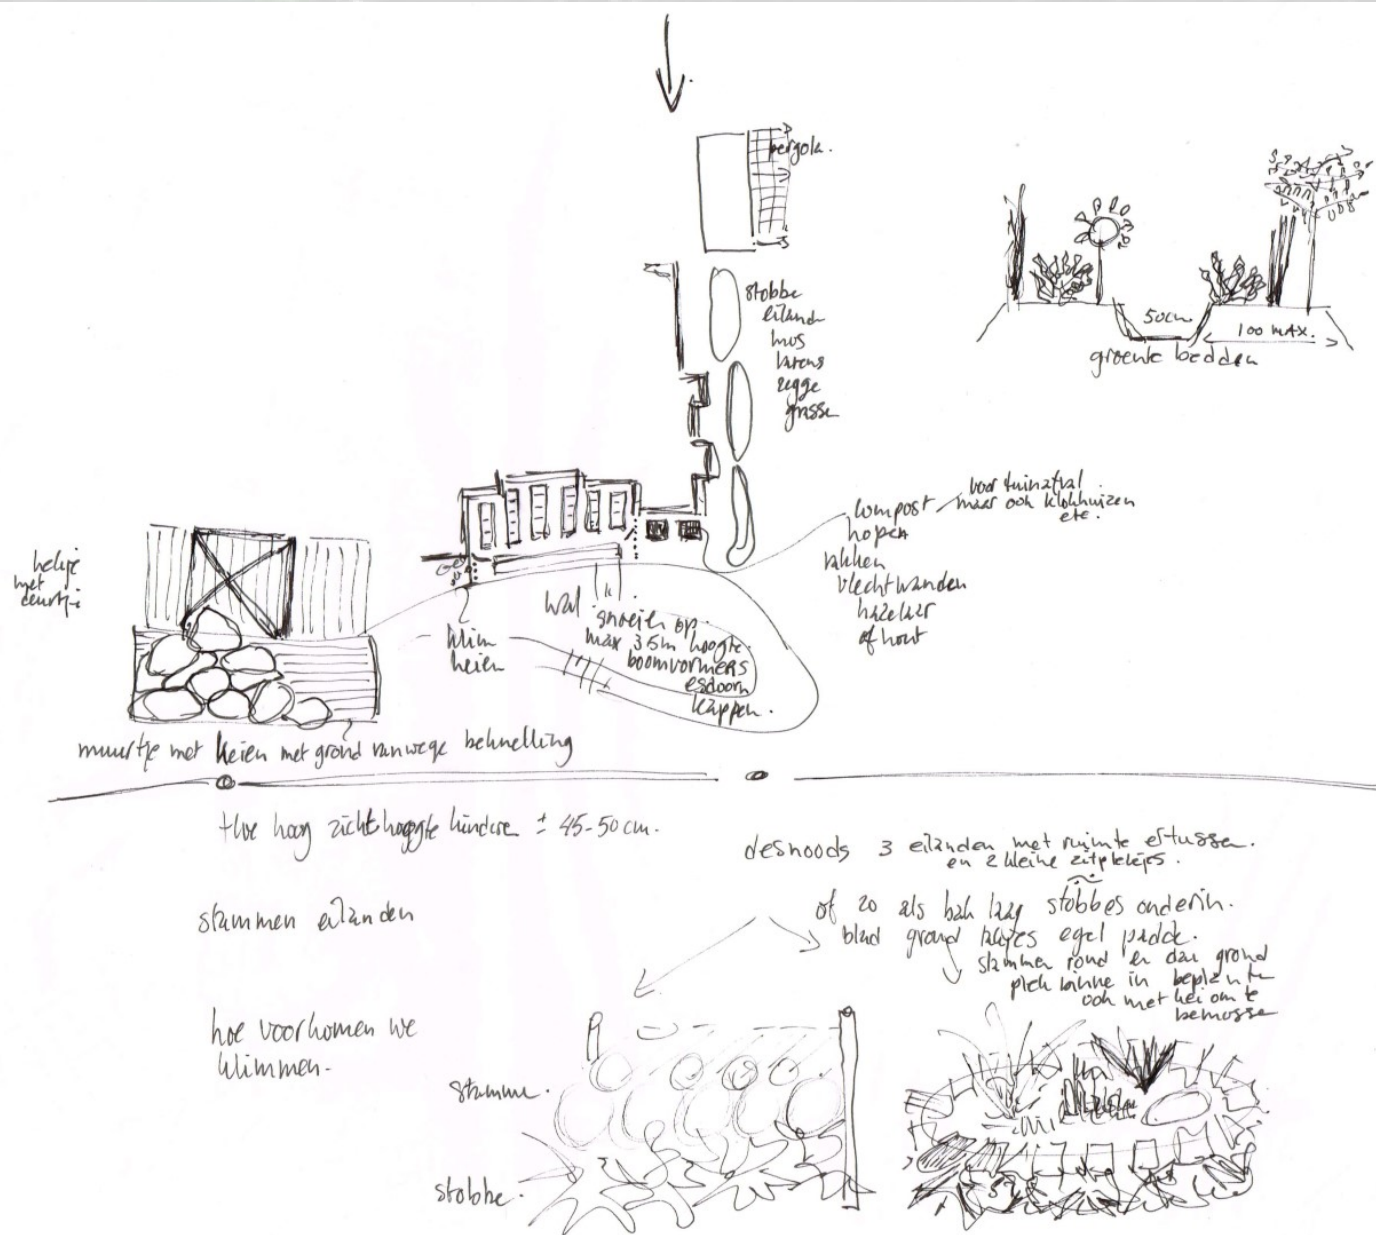 pergola.
stobbe
eiland
mos
varens
zegge
grasse
50cm.
100 MAX.
groente bedden
compost
hopen
takken
vlechtwanden
hazelaar
of hout
voor tuinafval
maar ook klokhuizen
etc.
hekje
met
deurtje
klim
keien
wal
snoeien op
max 3.5m hoogte
boomvormers
esdoorn
kappen.
muurtje met keien met grond vanwege beknelling
Hoe hoog zichthoogte kindere ± 45-50 cm.
stammen eilanden
hoe voorkomen we
klimmen.
desnoods 3 eilanden met ruimte ertussen.
en 2 kleine zitplekjes.
of zo als bak laag stobbes onderin.
blad grond takjes egel padde.
stammen rond en dan grond
plek binne in beplante
ook met kei om te
bemosse
stamme.
stobbe.